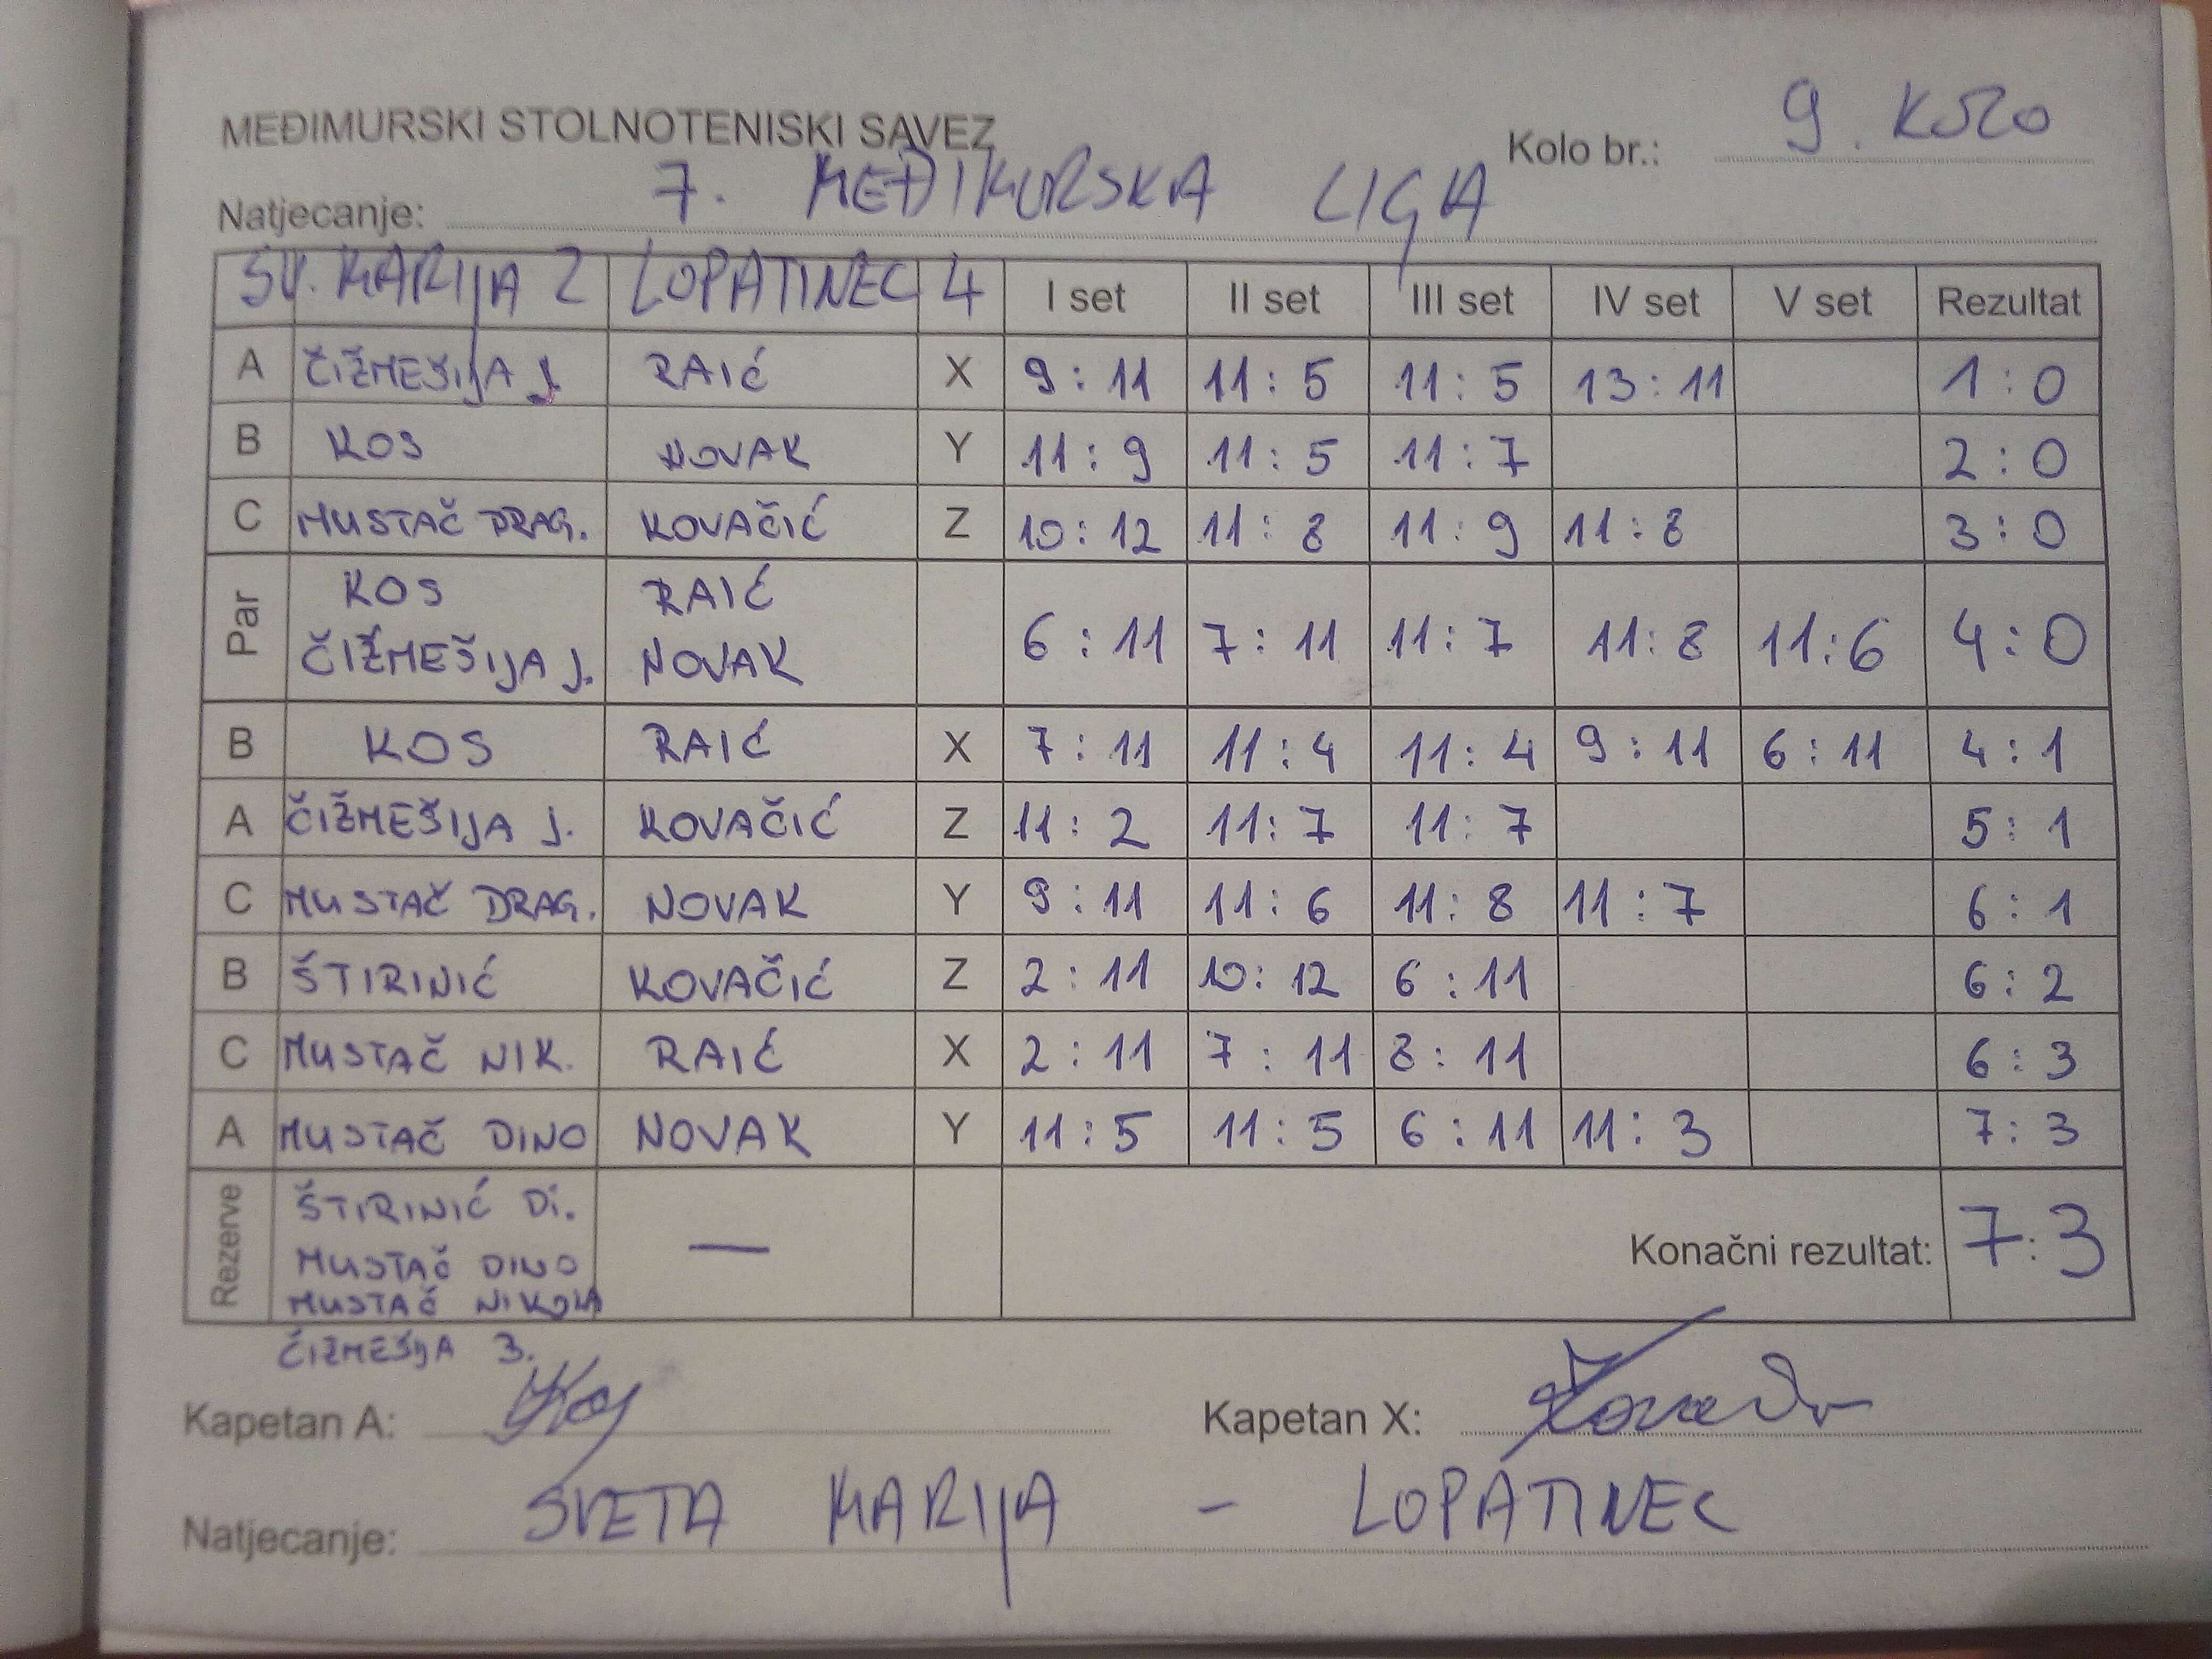 MEĐIMURSKI STOLNOTENISKI SAVEZ
Kolo br.: 9. KOLO
Natjecanje: 7. MEĐIMURSKA LIGA
SV. MARIJA 2 LOPATINEC 4 I set II set III set IV set V set Rezultat
A ČIŽMEŠIJA J. RAIĆ X 9:11 11:5 11:5 13:11 1:0
B KOS NOVAK Y 11:9 11:5 11:7 2:0
C MUSTAČ DRAG. KOVAČIĆ Z 10:12 11:8 11:9 11:8 3:0
Par KOS RAIĆ 6:11 7:11 11:7 11:8 11:6 4:0
ČIŽMEŠIJA J. NOVAK
B KOS RAIĆ X 7:11 11:4 11:4 9:11 6:11 4:1
A ČIŽMEŠIJA J. KOVAČIĆ Z 11:2 11:7 11:7 5:1
C MUSTAČ DRAG. NOVAK Y 9:11 11:6 11:8 11:7 6:1
B ŠTIRINIĆ KOVAČIĆ Z 2:11 10:12 6:11 6:2
C MUSTAČ NIK. RAIĆ X 2:11 7:11 8:11 6:3
A MUSTAČ DINO NOVAK Y 11:5 11:5 6:11 11:3 7:3
Rezerve ŠTIRINIĆ DI. — Konačni rezultat: 7:3
MUSTAČ DINO
MUSTAČ NIKOLA
ČIŽMEŠIJA 3.
Kapetan A: Kos Kapetan X:
Natjecanje: SVETA MARIJA - LOPATINEC